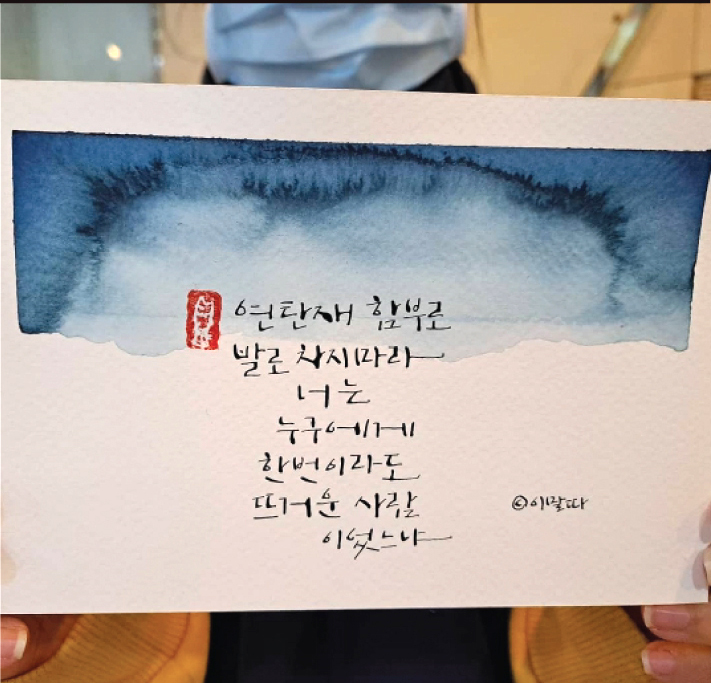 연탄재 함부로
발로 차지마라
너는
누구에게
한번이라도
뜨거운 사람
이었느냐
©이말따